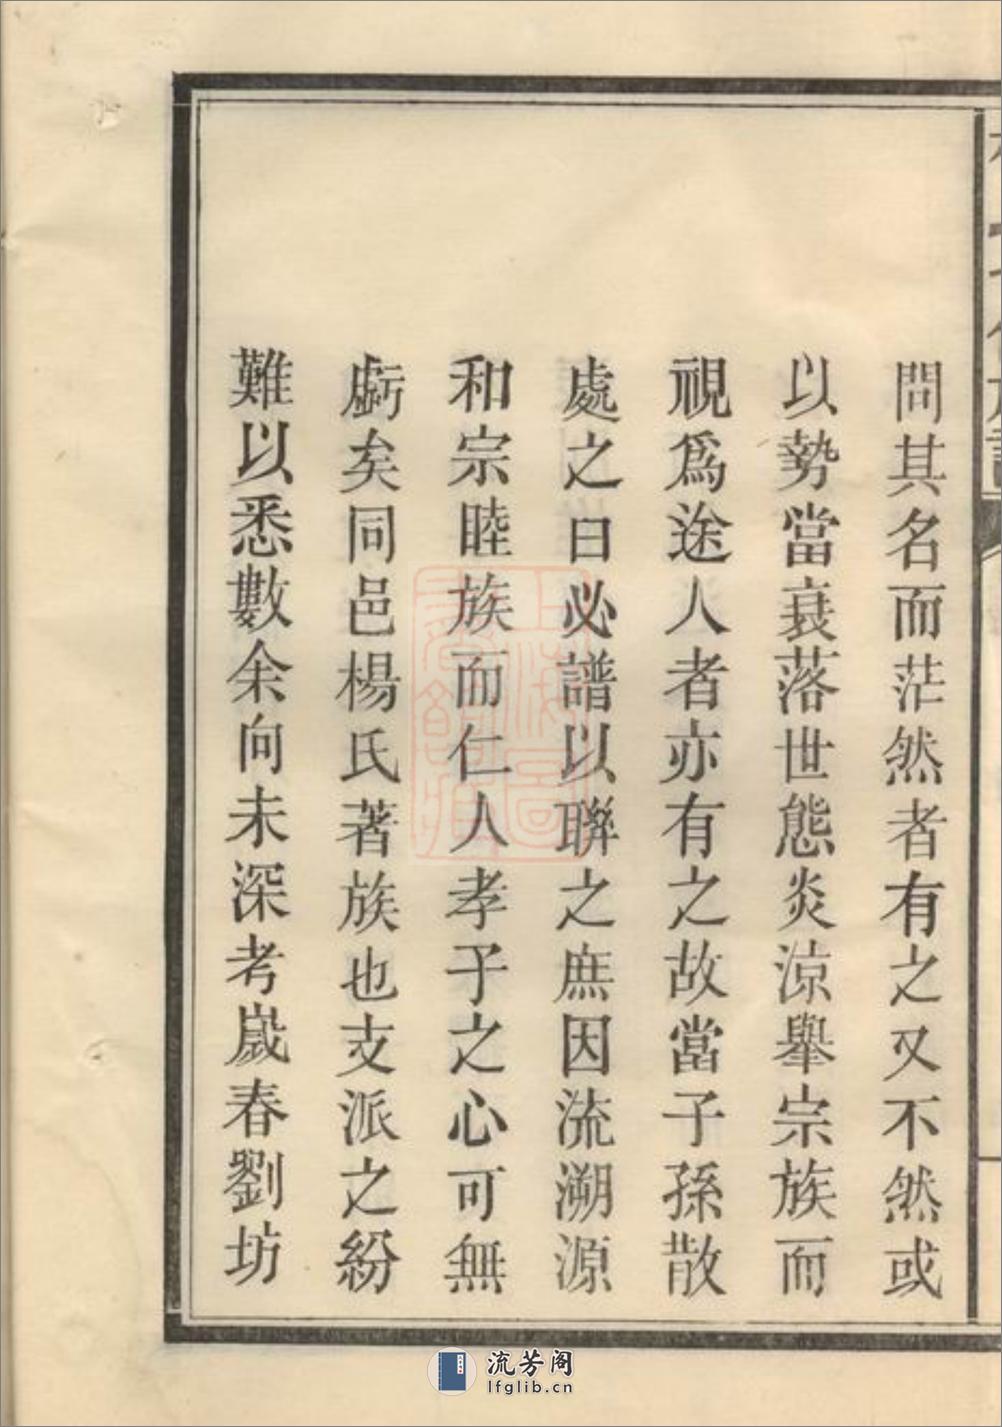 問其名而茫然者有之又不然或
以勢當衰落世態炎涼舉宗族而
視爲途人者亦有之故當子孫散
處之日必譜以聯之庶因流溯源
和宗睦族而仁人孝子之心可無
虧矣同邑楊氏著族也支派之紛
難以悉數余向未深考嵗春劉坊
流芳阁
lfglib.cn